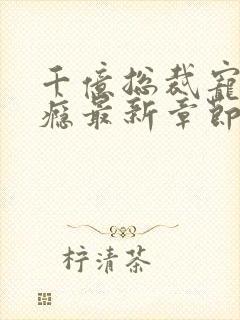 千亿总裁宠
瘾最新章节
柠清茶